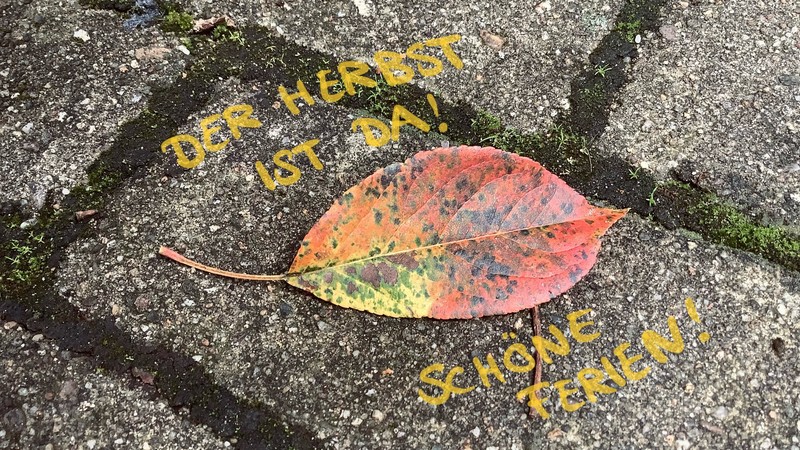 DER HERBST
IST DA!
SCHÖNE
FERIEN!